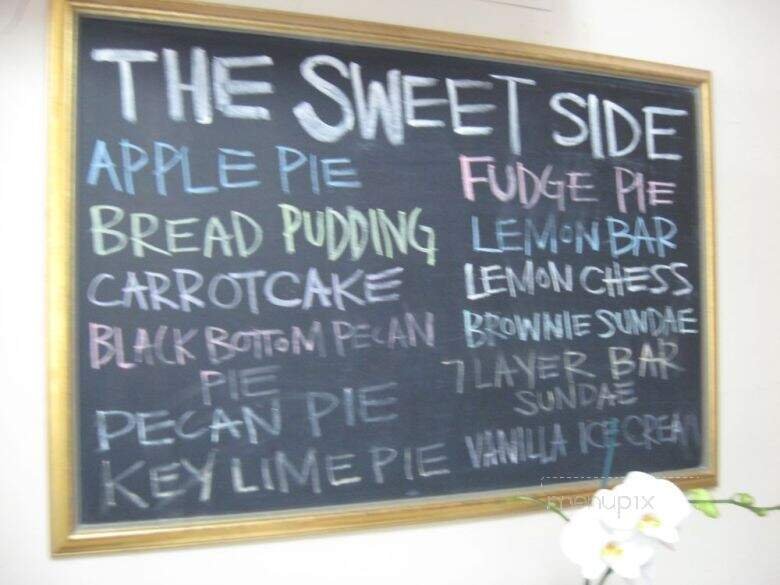 THE SWEET SIDE
APPLE PIE
BREAD PUDDING
CARROTCAKE
BLACK BOTTOM PECAN
PIE
PECAN PIE
KEY LIME PIE
FUDGE PIE
LEMON BAR
LEMON CHESS
BROWNIE SUNDAE
7 LAYER BAR
SUNDAE
VANILLA ICE CREAM
menupix